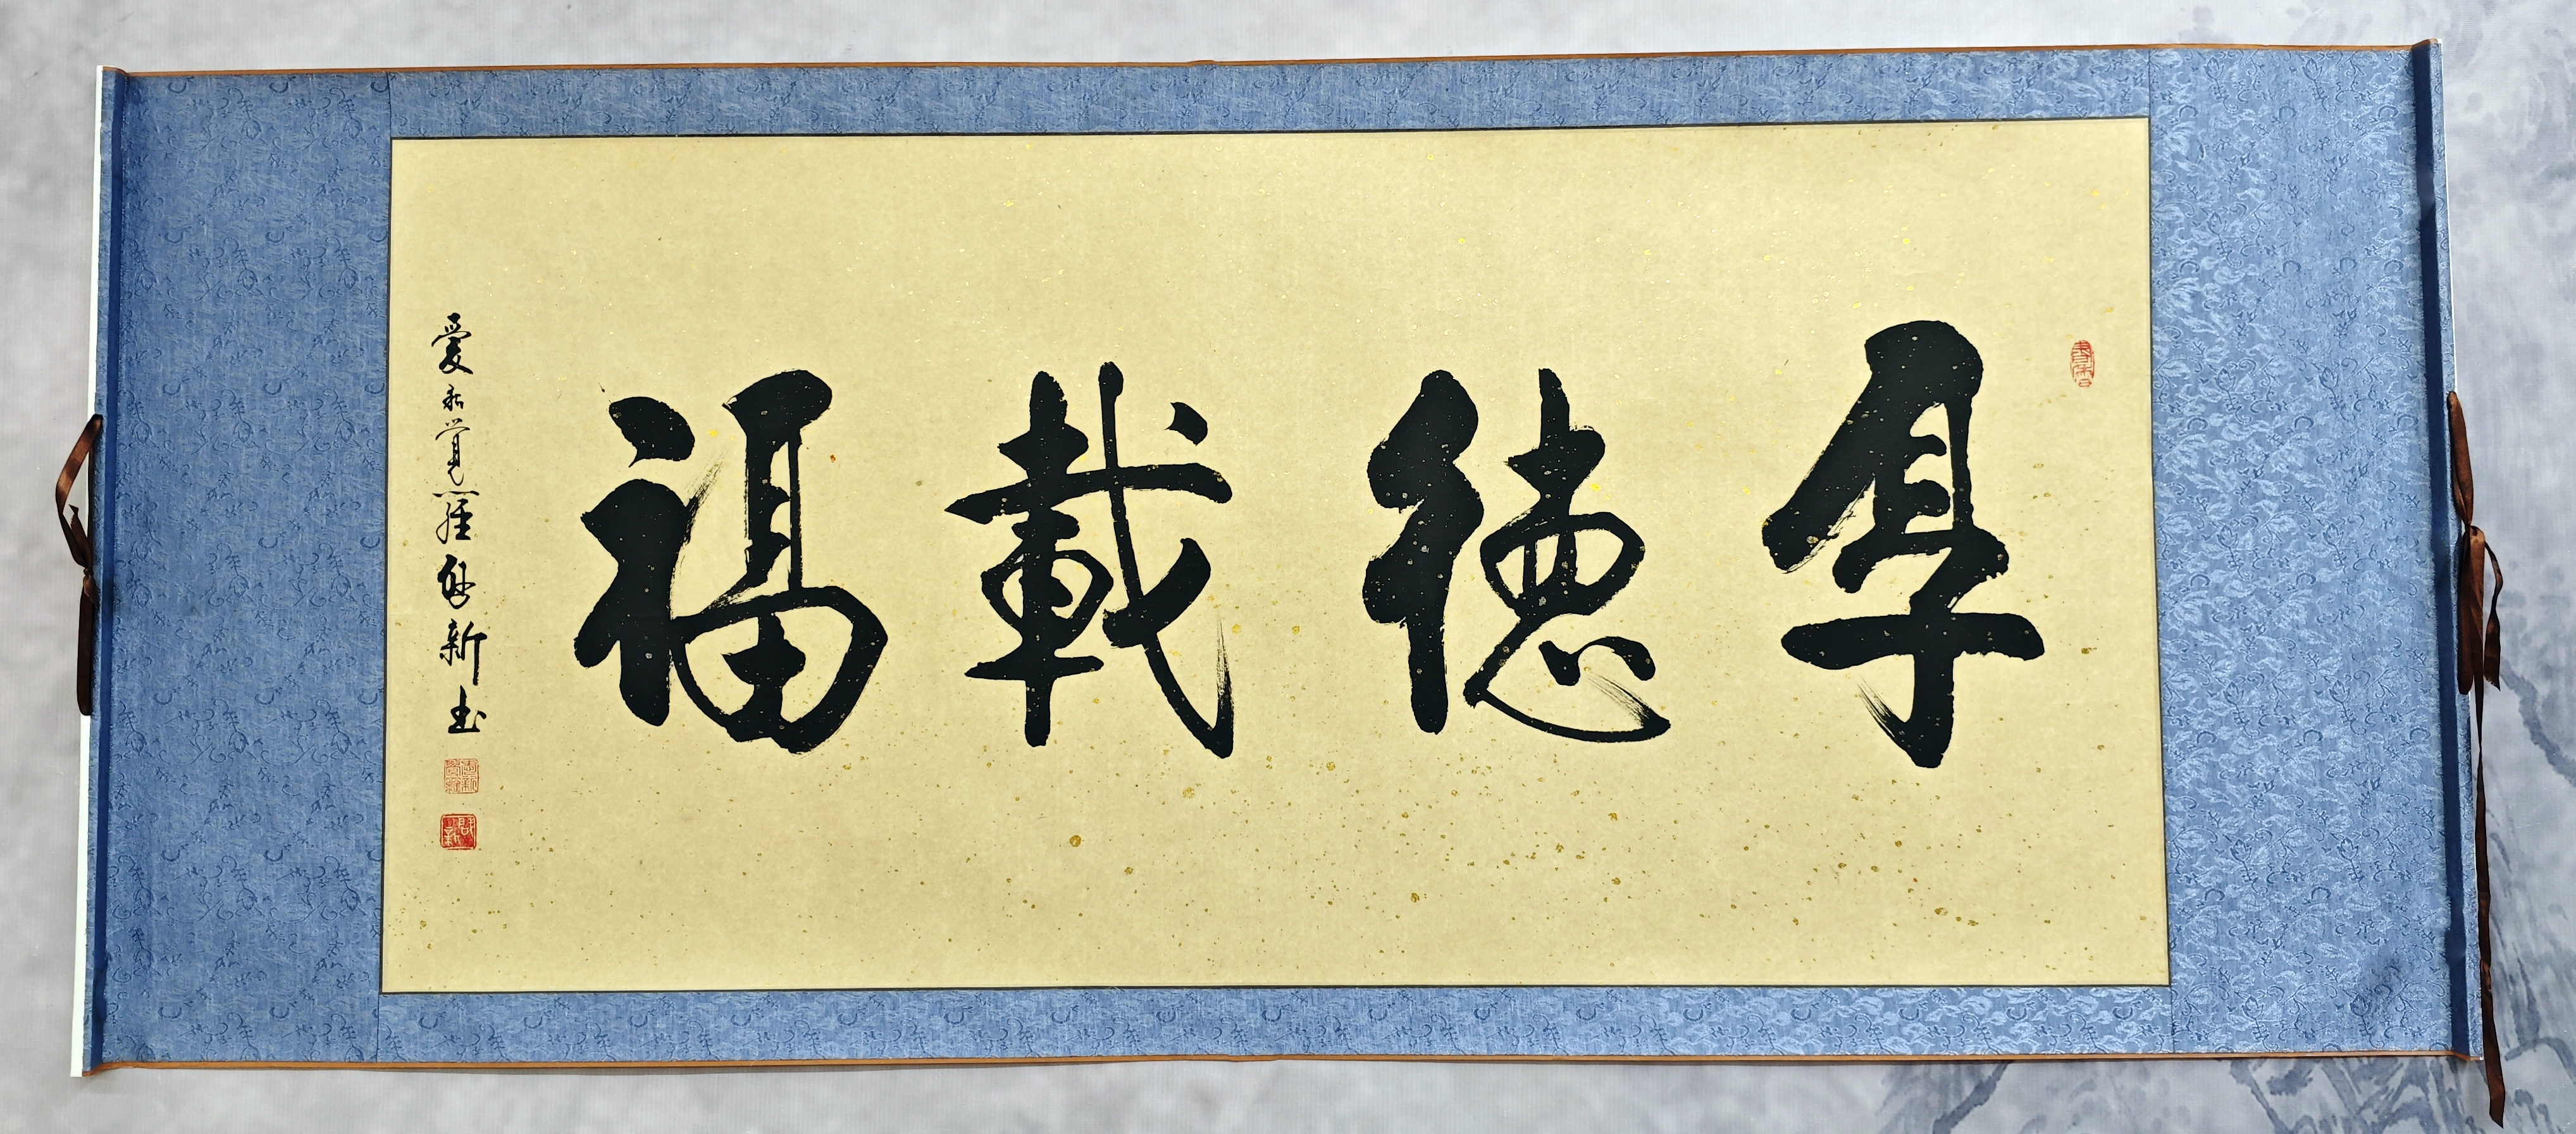 厚德載福
愛新覺羅啟新書